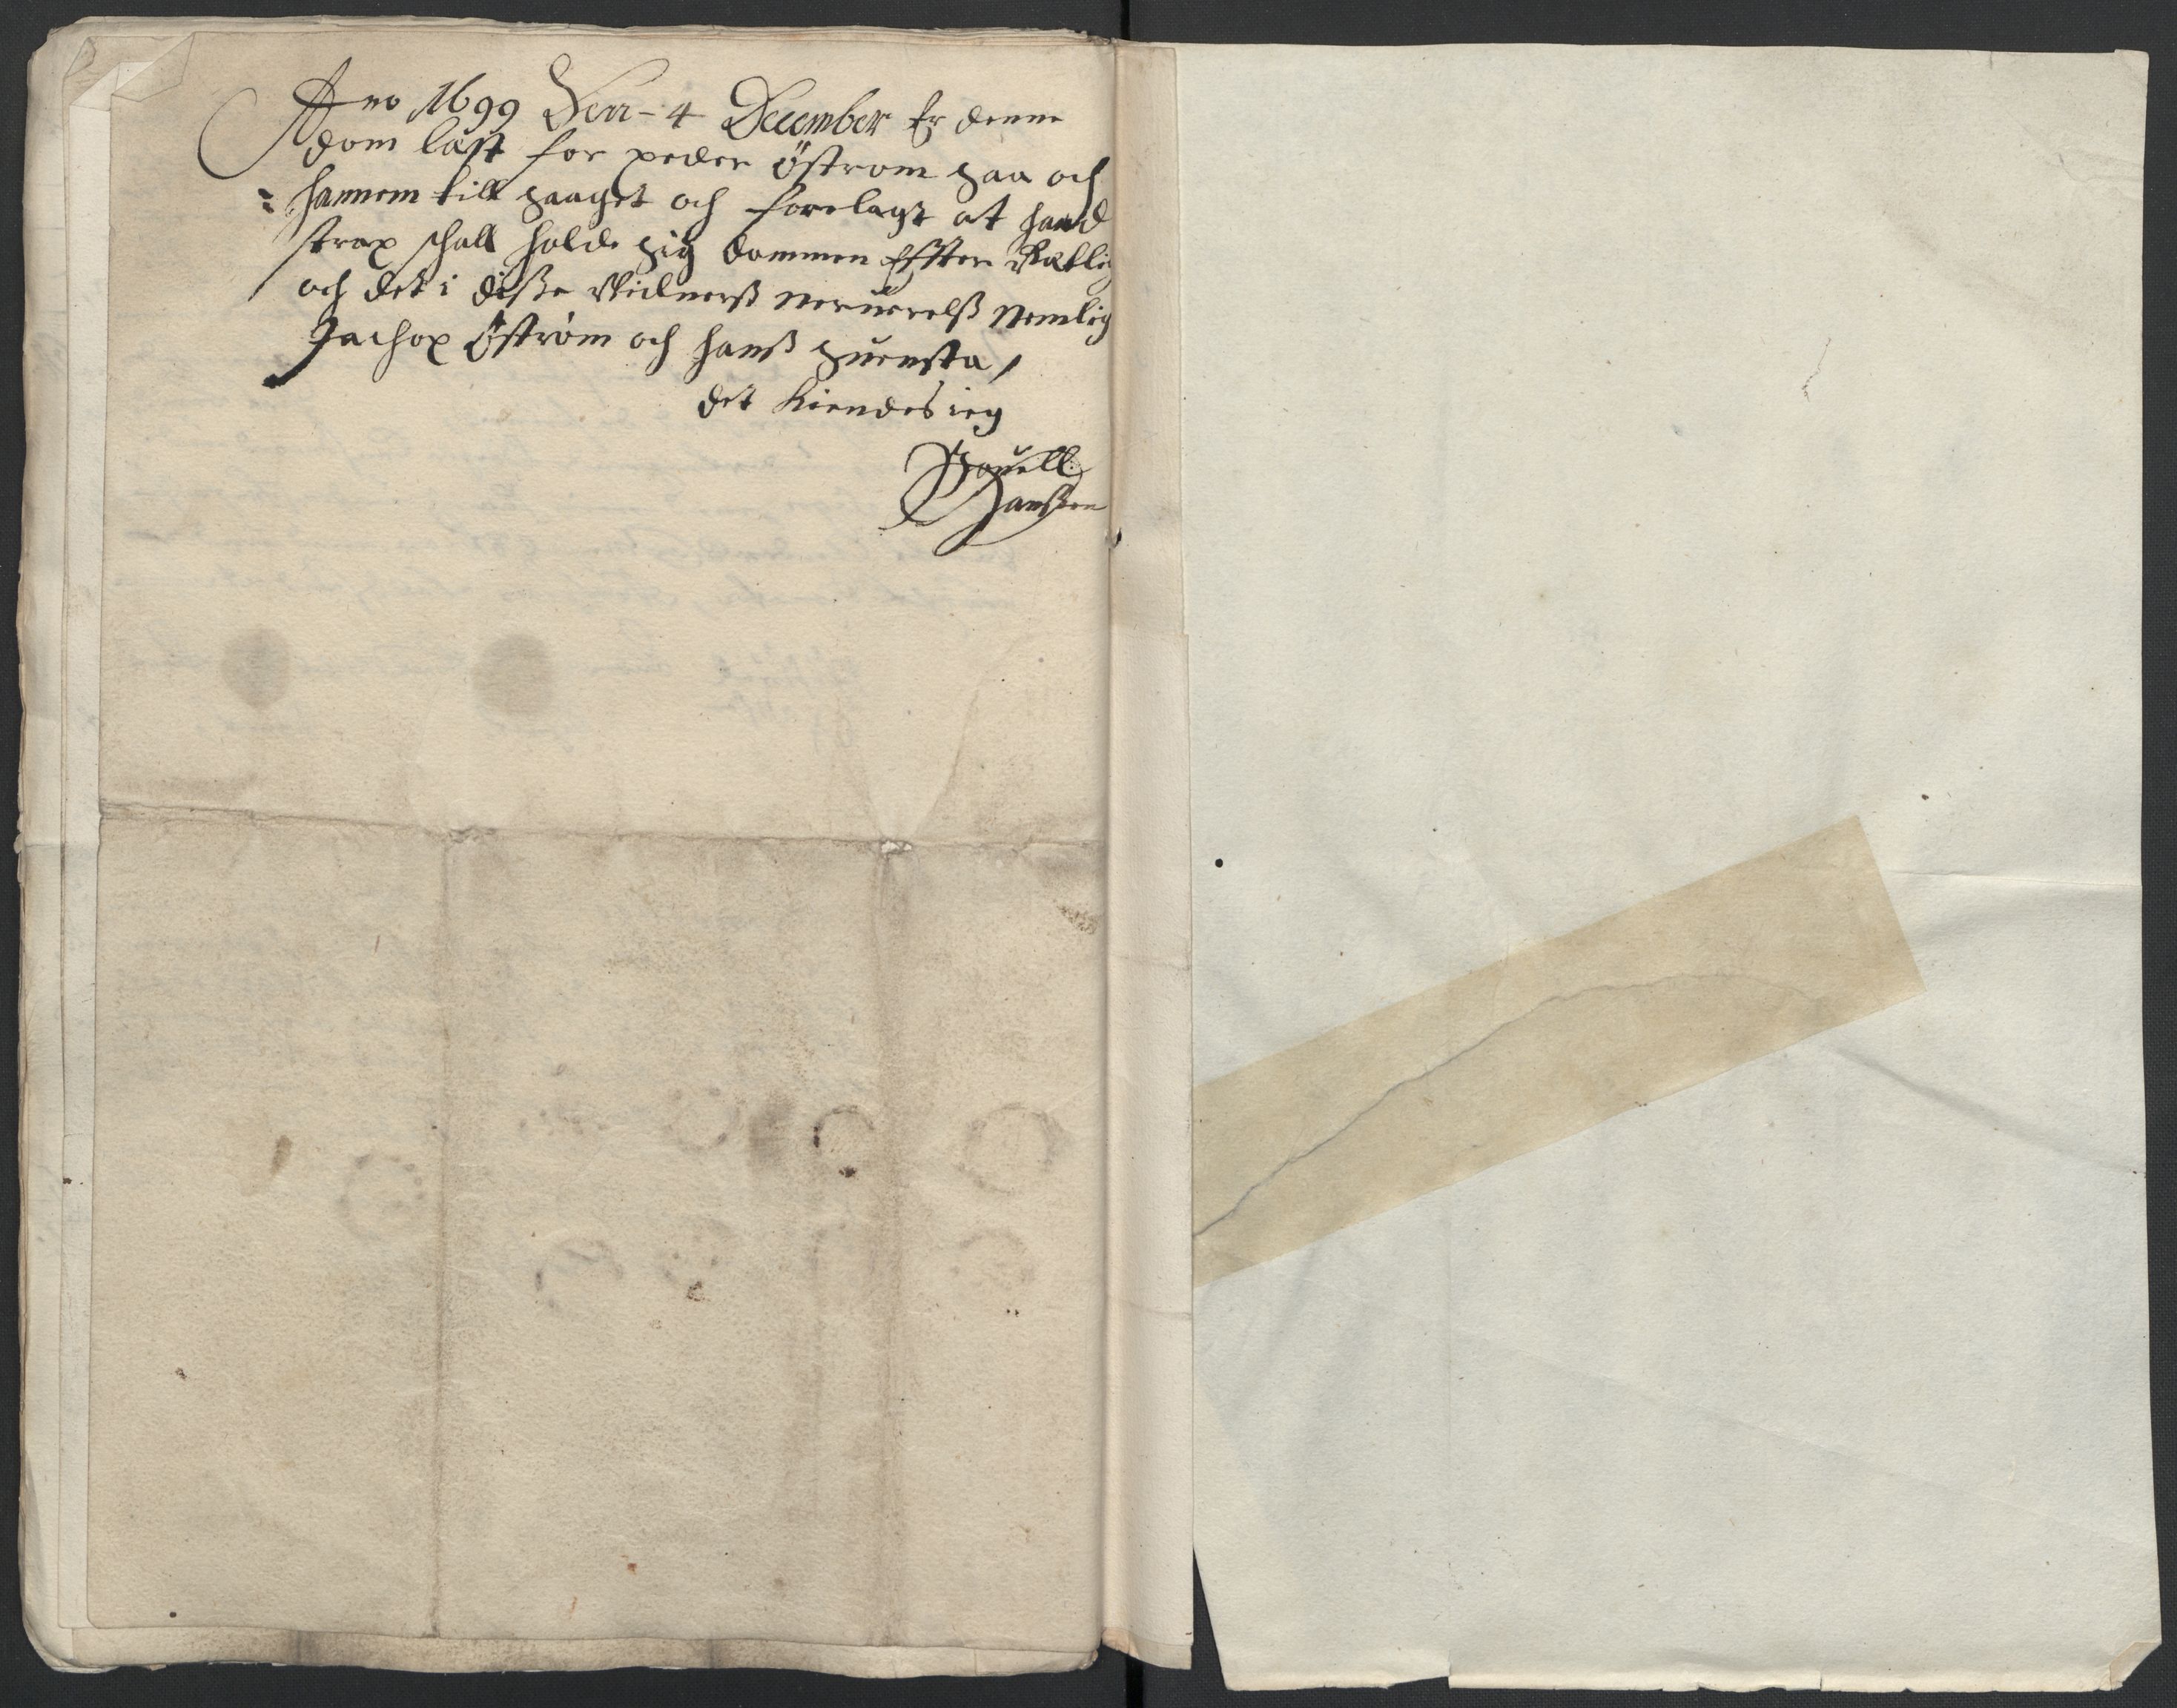 Ano 1699 Den 4 December Er denne
dom läst for peder östrom paa och
hannem till paaget och forelagt at hand
strax schall holde sig dommen Effter Rætlig
och det i disse Widnerß neruerelß Nemlig
Jachop Öström och hanß
det kiendes ieg
Pouell
Hanßen